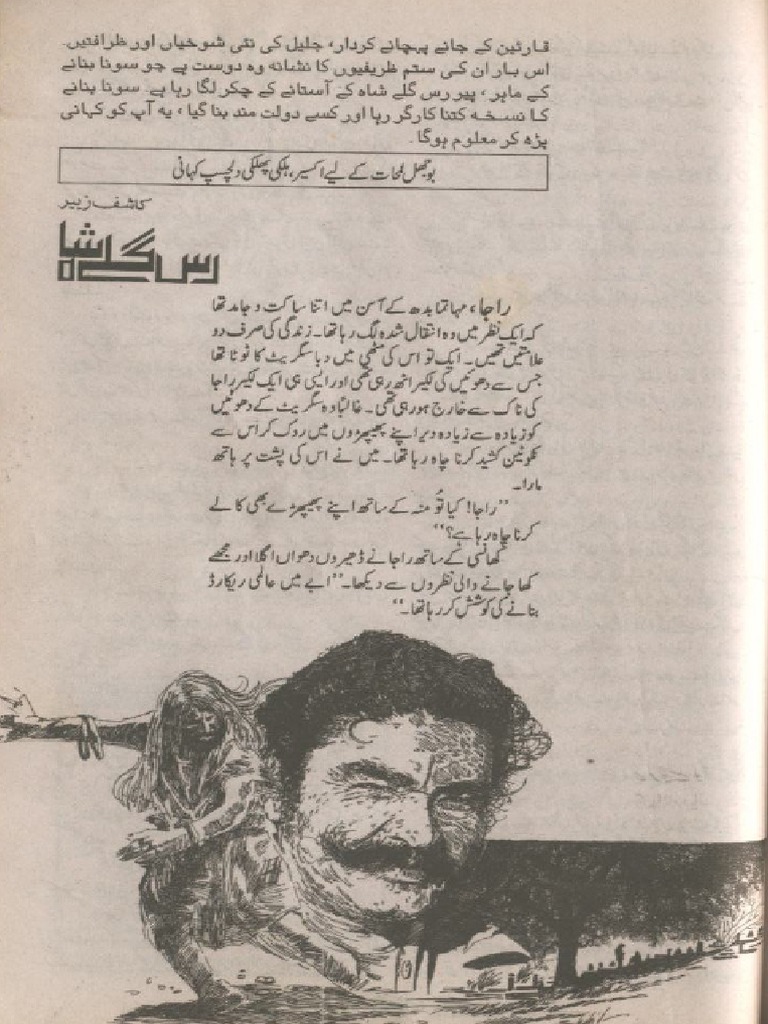 قارئین کے جانے پہچانے کردار، جلیل کی نئی شوخیاں اور ظرافتیں۔
اس بار ان کی ستم ظریفیوں کا نشانہ وہ دوست ہے جو سونا بنانے
کے ماہر، پیر رس گلے شاہ کے آستانے کے چکر لگا رہا ہے۔ سونا بنانے
کا نسخہ کتنا کارگر رہا اور کسے دولت مند بنا گیا، یہ آپ کو کہانی
پڑھ کر معلوم ہوگا۔
بوجھل لمحات کے لیے اکسیر، ہلکی پھلکی دلچسپ کہانی
کاشف زبیر
رس گلے شاہ
راجا، مہاتما بدھ کے آسن میں اتنا ساکت و جامد تھا
کہ ایک نظر میں وہ انتقال شدہ لگ رہا تھا۔ زندگی کی صرف دو
علامتیں تھیں۔ ایک تو اس کی مٹھی میں دبا سگریٹ کا ٹوٹا تھا
جس سے دھوئیں کی لکیر اٹھ رہی تھی اور ایسی ہی ایک لکیر راجا
کی ناک سے خارج ہورہی تھی۔ غالباً وہ سگریٹ کے دھوئیں
کو زیادہ سے زیادہ دیر اپنے پھیپھڑوں میں روک کر اس سے
نکوٹین کشید کرنا چاہ رہا تھا۔ میں نے اس کی پشت پر ہاتھ
مارا۔
’’راجا! کیا تُو منہ کے ساتھ اپنے پھیپھڑے بھی کالے
کرنا چاہ رہا ہے؟‘‘
کھانسی کے ساتھ راجا نے ڈھیروں دھواں اگلا اور مجھے
کھا جانے والی نظروں سے دیکھا۔ ’’ابے میں عالمی ریکارڈ
بنانے کی کوشش کر رہا تھا۔‘‘